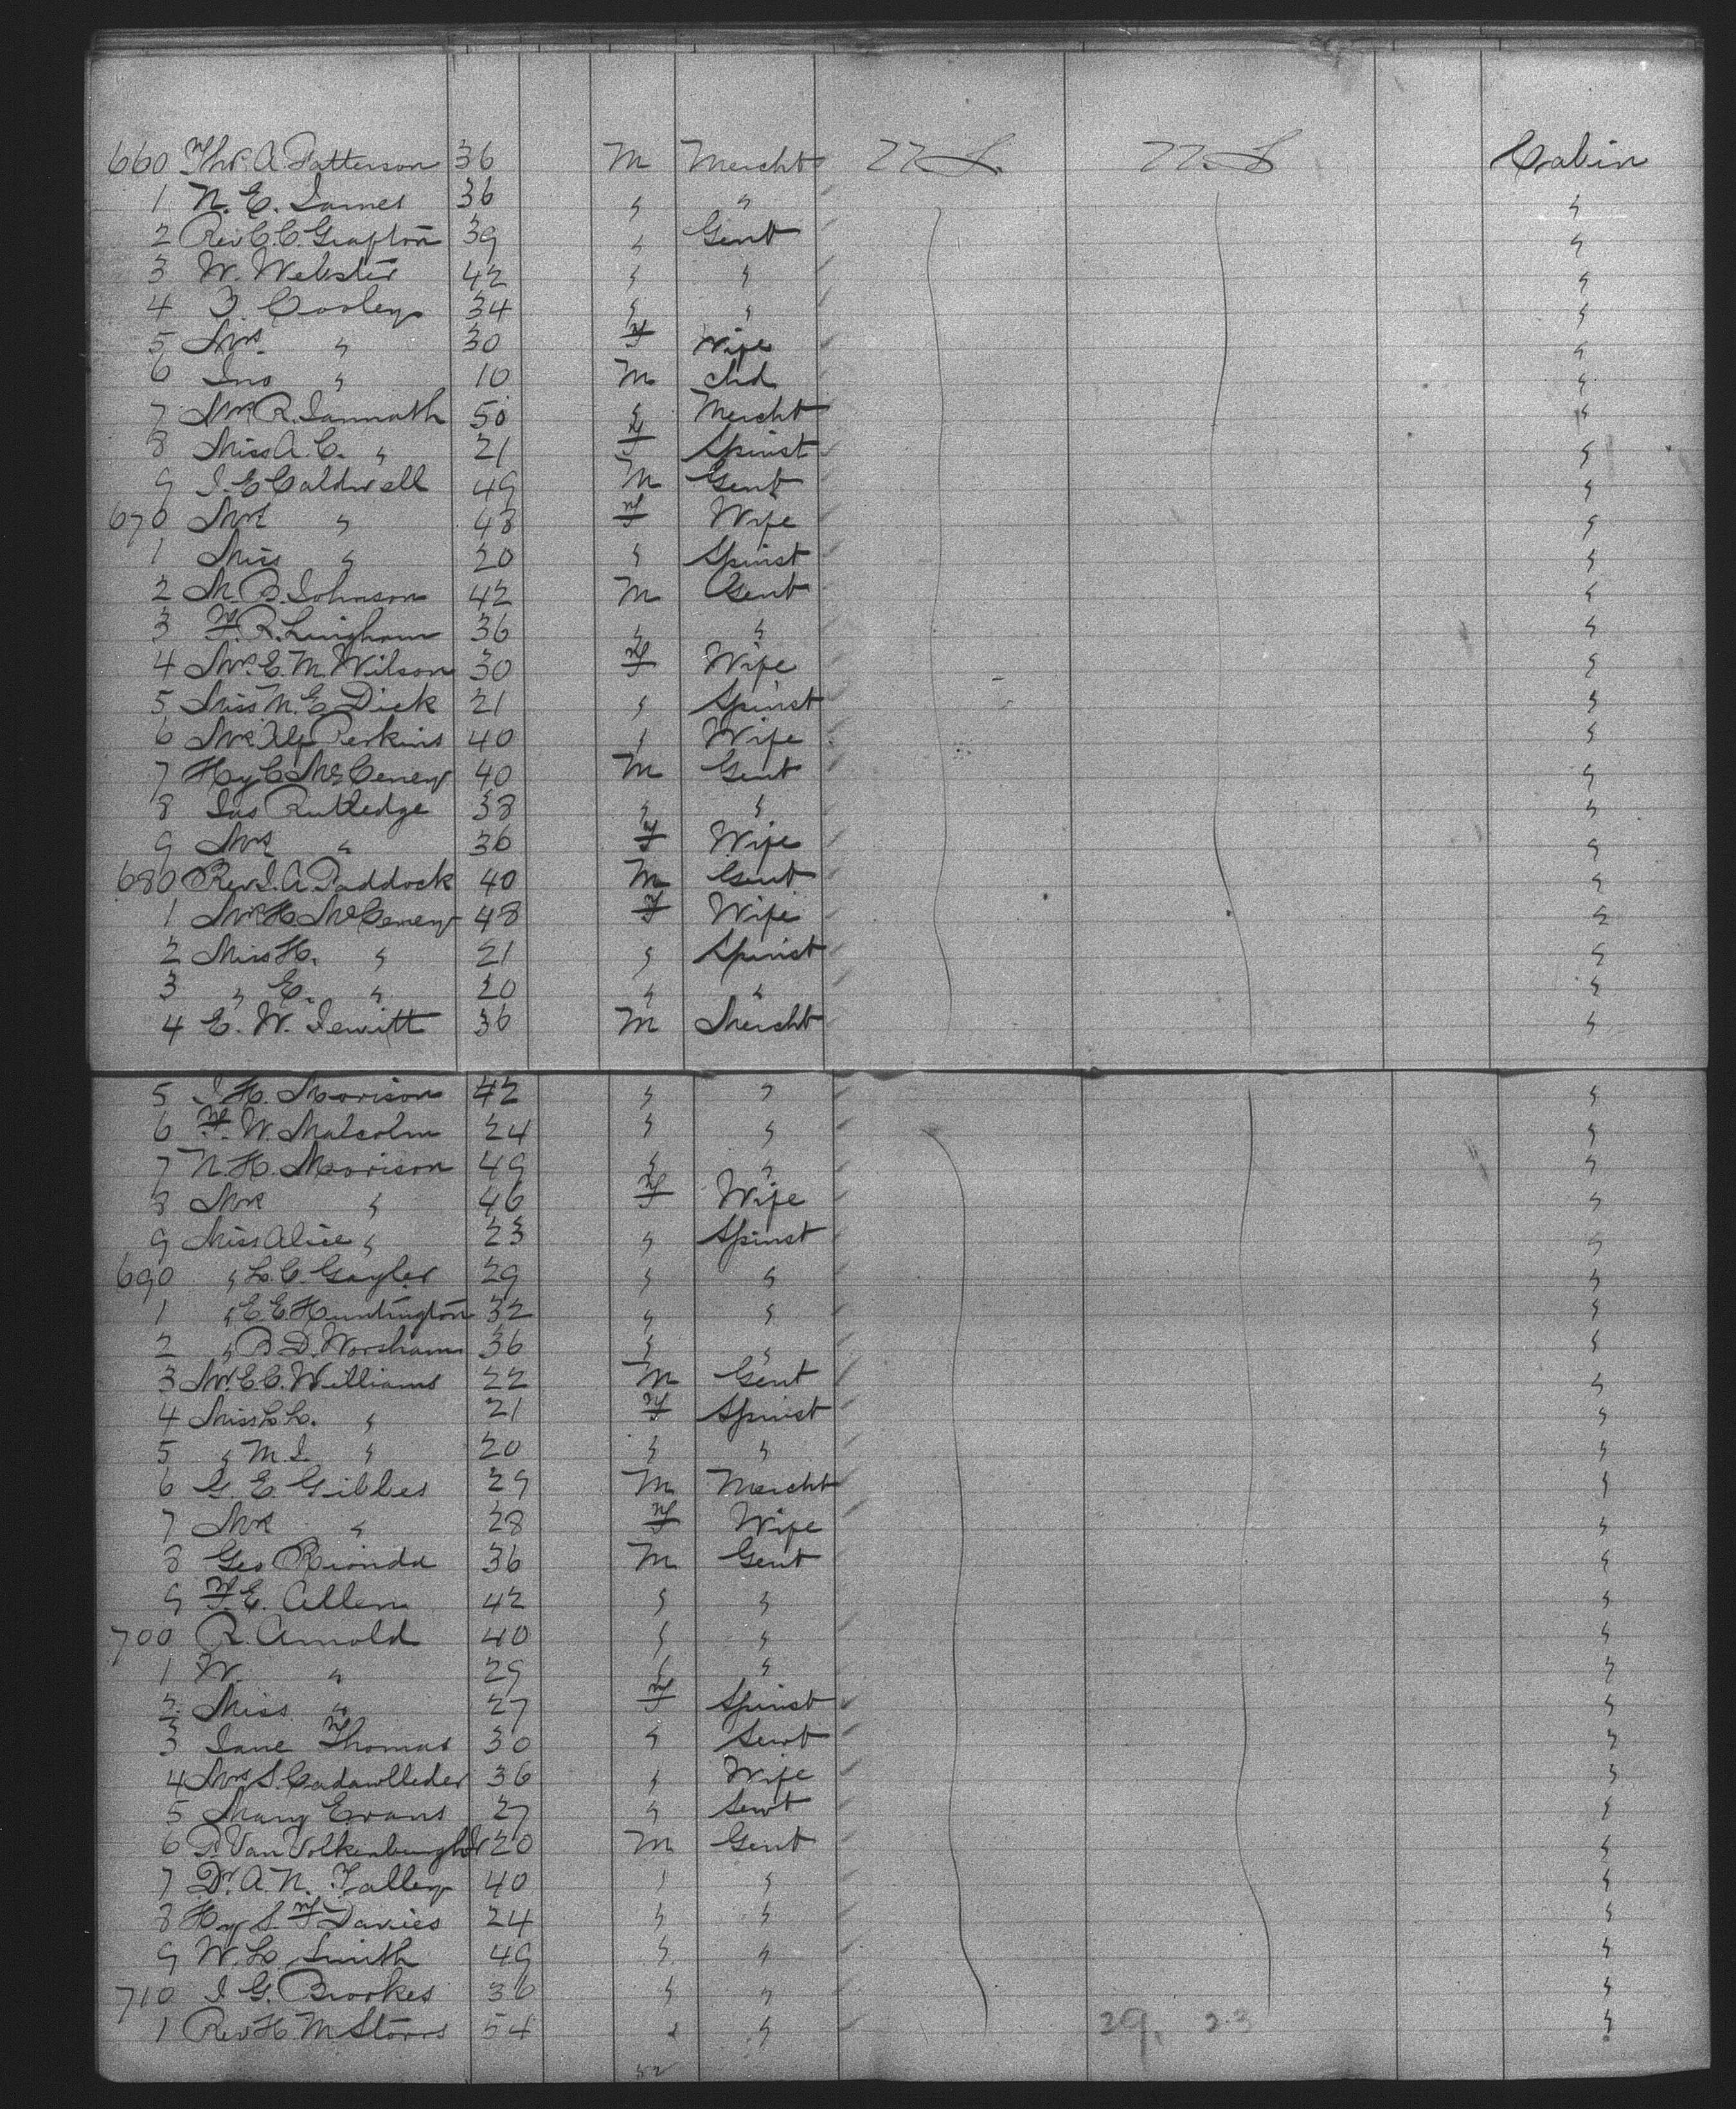 660 Thos. A. Patterson 36 M Mercht U.S. U.S. Cabin
1 N. E. James 36 " " "
2 Rev C. C. Grafton 39 " Gent "
3 W. Webster 42 " " "
4 J. Cooley 34 " " "
5 Mrs. " 30 F Wife "
6 Jno " 10 M chd "
7 Mr R. 50 " Mercht "
8 Miss A. C. " 21 F Spinst "
9 J. E Caldwell 49 M Gent "
670 Mrs " 48 F Wife "
1 Miss " 20 " Spinst "
2 M. B. Johnson 42 M Gent "
3 F. R. Lingham 36 " " "
4 Mrs. E. M. Wilson 30 F Wife "
5 Miss N. E. Dick 21 " Spinst "
6 Mrs Perkins 40 " Wife "
7 Hy C. 40 M Gent "
8 Jas Rutledge 38 " " "
9 Mrs " 36 F Wife "
680 Rev J. A. Paddock 40 M Gent "
1 Mrs H. 48 F Wife "
2 Miss H. " 21 " Spinst "
3 " E. " 20 " " "
4 E. W. Jewitt 36 M Mercht "
5 J. H. Morison 42 " " "
6 F. W. Malcolm 24 " " "
7 N. H. Morrison 49 " " "
8 Mrs " 46 F Wife "
9 Miss Alice " 23 " Spinst "
690 " L. C. Gayler 29 " " "
1 " E E Huntington 32 " " "
2 " B. D. Worsham 36 " " "
3 Mr. E C. Williams 22 M Gent "
4 Miss L L. " 21 F Spinst "
5 " M. J. " 20 " " "
6 G. E. Gibbes 29 M Mercht "
7 Mrs " 28 F Wife "
8 Geo Rionda 36 M Gent "
9 F. E. Allen 42 " " "
700 R. Arnold 40 " " "
1 W. " 29 " " "
2 Miss " 27 F Spinst "
3 Jane Thomas 30 " Servt "
4 Mrs S. Cadawlleder 36 " Wife "
5 Mary Evans 27 " Servt "
6 P. Van Volkenburgh Jr 20 M Gent "
7 Dr. A. N. Talley 40 " " "
8 Hy S. F Davies 24 " " "
9 W. L. Smith 49 " " "
710 J. G. Brookes 36 " " "
1 Rev H M Storrs 54 " " 29. 23 "
52